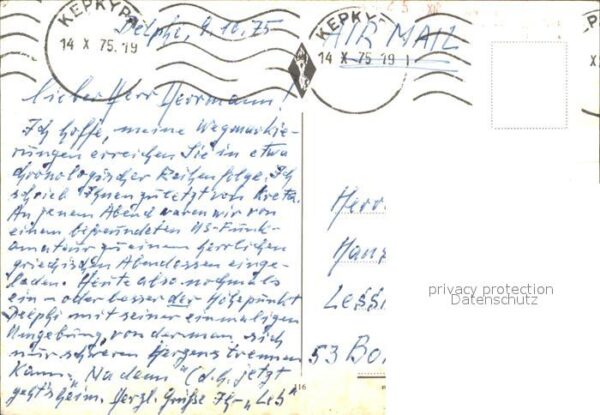 ΚΕΡΚΥΡ
14 X 75.19
Delphi, 9.10.75
ΚΕΡΚΥ
14 X 75 19
AIR MAIL
Lieber Herr Herrmann!
Ich hoffe, meine Wegmarkie-
rungen erreichen Sie in etwa
chronologischer Reihenfolge. Ich
schrieb Ihnen zuletzt von Kreta.
An jenem Abend waren wir von
einem befreundeten US-Funk-
amateur zu einem herrlichen
griechischen Abendessen einge-
laden. Heute also nochmals
ein - oder besser der Höhepunkt
Delphi mit seiner einmaligen
Umgebung, von der man sich
nur schweren Herzens trennen
kann. "Na denn" (d.h. jetzt
geht's heim. Herzl. Grüße Ihr "Les"
Herr
Hanz
Lessi
53 Bo
116
privacy protection
Datenschutz